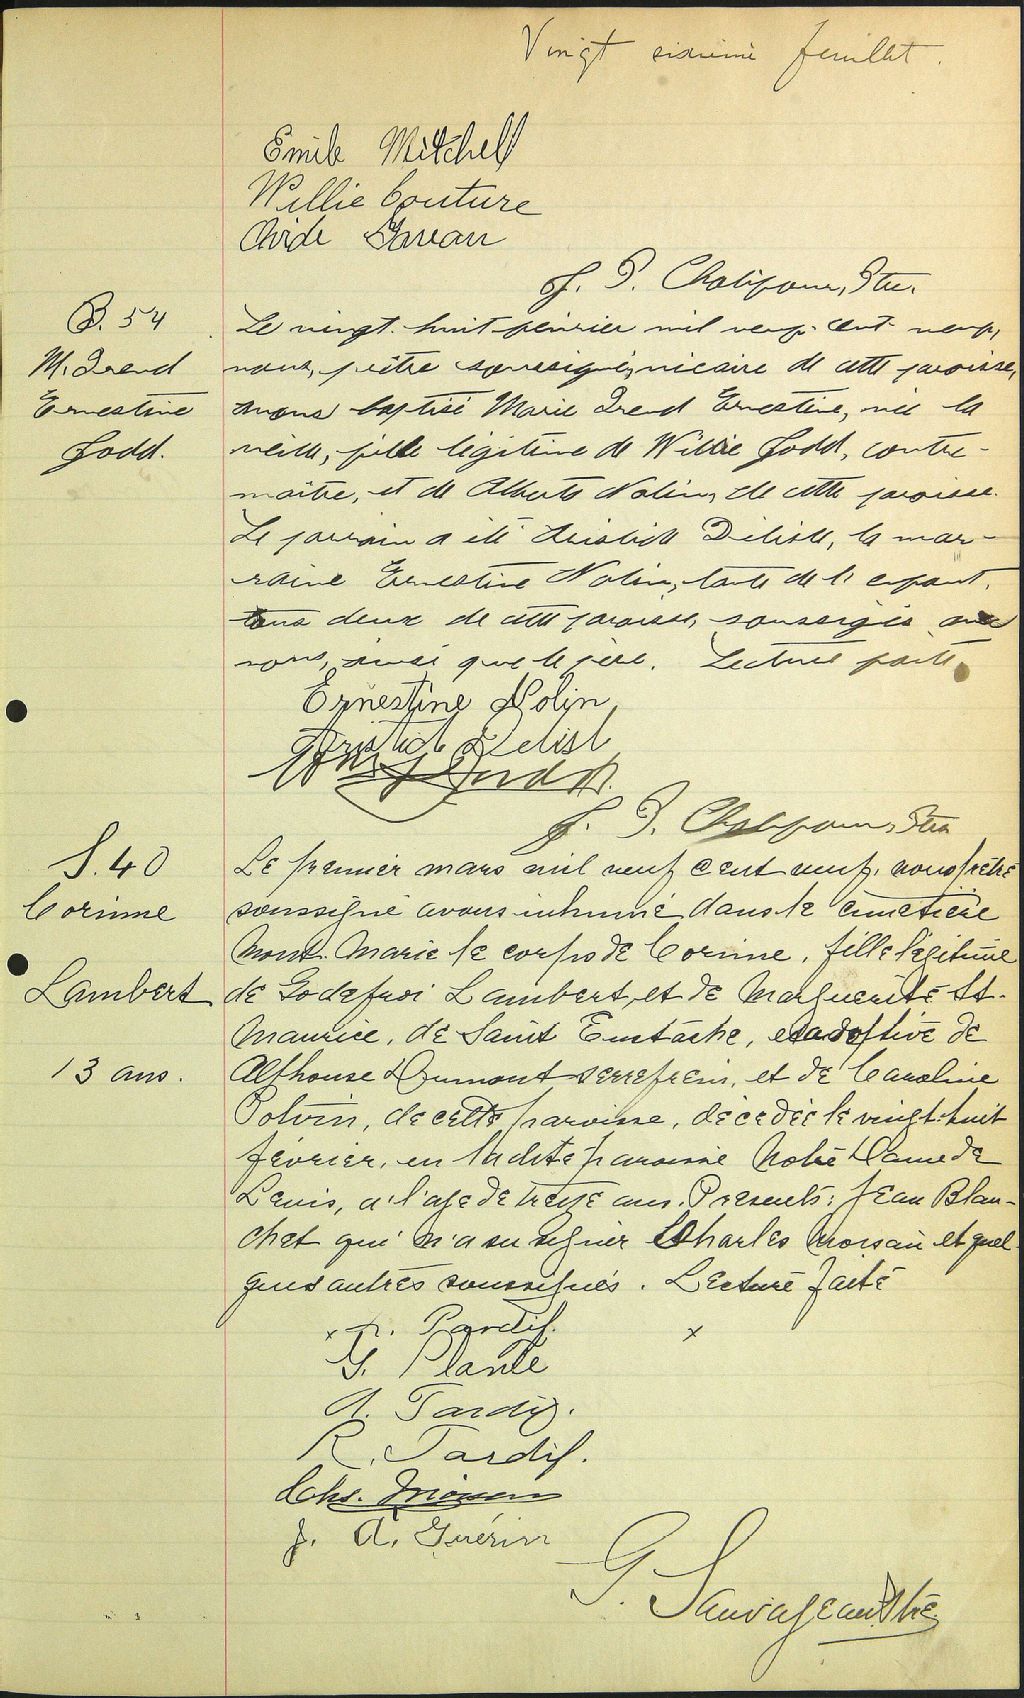 Vingt sixième feuillet.
Emile Mitchell
Willie Couture
Ovide
J. P. Chabifour, Ptre.
B. 54
M. Irend
Ernestine
Godd.
Le vingt-huit février mil neuf-cent-neuf,
nous, prêtre soussigné, vicaire de cette paroisse,
avons baptisé Marie Irend Ernestine, née la
veille, fille légitime de Willie Godd, contre-
maître, et de Alberta Nolin, de cette paroisse.
Le parrain a été Aristide Delisle, la mar-
raine Ernestine Nolin, tante de l'enfant,
tous deux de cette paroisse, soussignés avec
nous, ainsi que le père. Lecture faite.
Ernestine Nolin
Aristide Delisle
J. P. Chabifour, Ptre
S. 40
Corinne
Lambert
13 ans.
Le premier mars mil neuf cent neuf, nous prêtre
soussigné avons inhumé dans le cimetière
Mont-Marie le corps de Corinne, fille légitime
de Godefroi Lambert, et de Marguerite St-
Maurice, de Saint Eustache, et adoptive de
Alphonse Dumont serrefrein, et de Caroline
Potvin, de cette paroisse, décédée le vingt-huit
février, en la dite paroisse Notre Dame de
Levis, a l'age de treize ans. Presents: Jean Blan-
chet qui n'a su signer Charles Morsain et quel-
ques autres soussignés. Lecture faite
x Tardif. x
G. Plante
A. Tardif.
R. Tardif.
Chs.
J. A. Guérin
G. Sauvageau Ptre